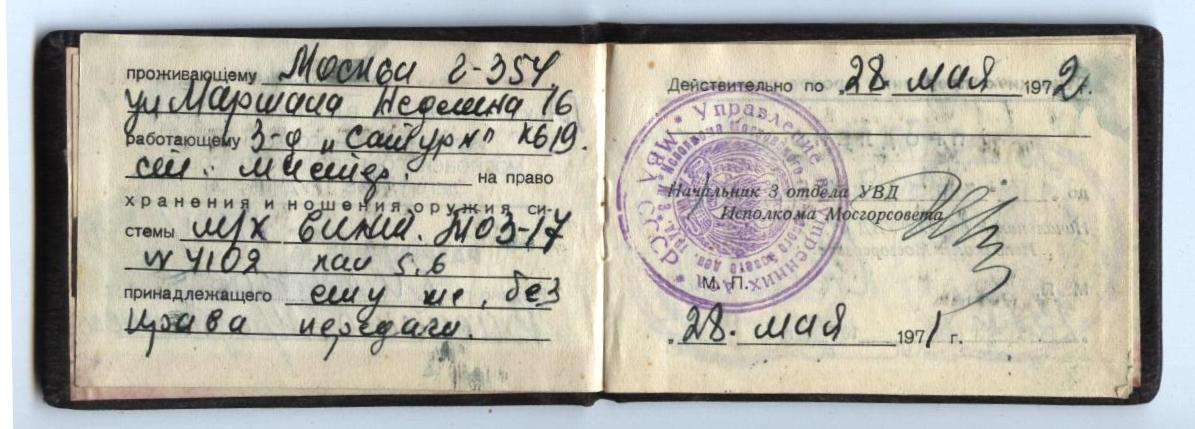 проживающему Москва г-354,
ул Маршала Неделина 16
работающему З-д "Сатурн" к619.
ст. мастер. на право
хранения и ношения оружия си-
стемы м/к винт. ТОЗ-17
N 4102 кал 5,6
принадлежащего ему же, без
права передачи.
Действительно по "28 мая 1972 г.
Начальник 3 отдела УВД
Исполкома Мосгорсовета
М. П.
"28. мая 1971 г.
Управление внутренних дел
МВД СССР